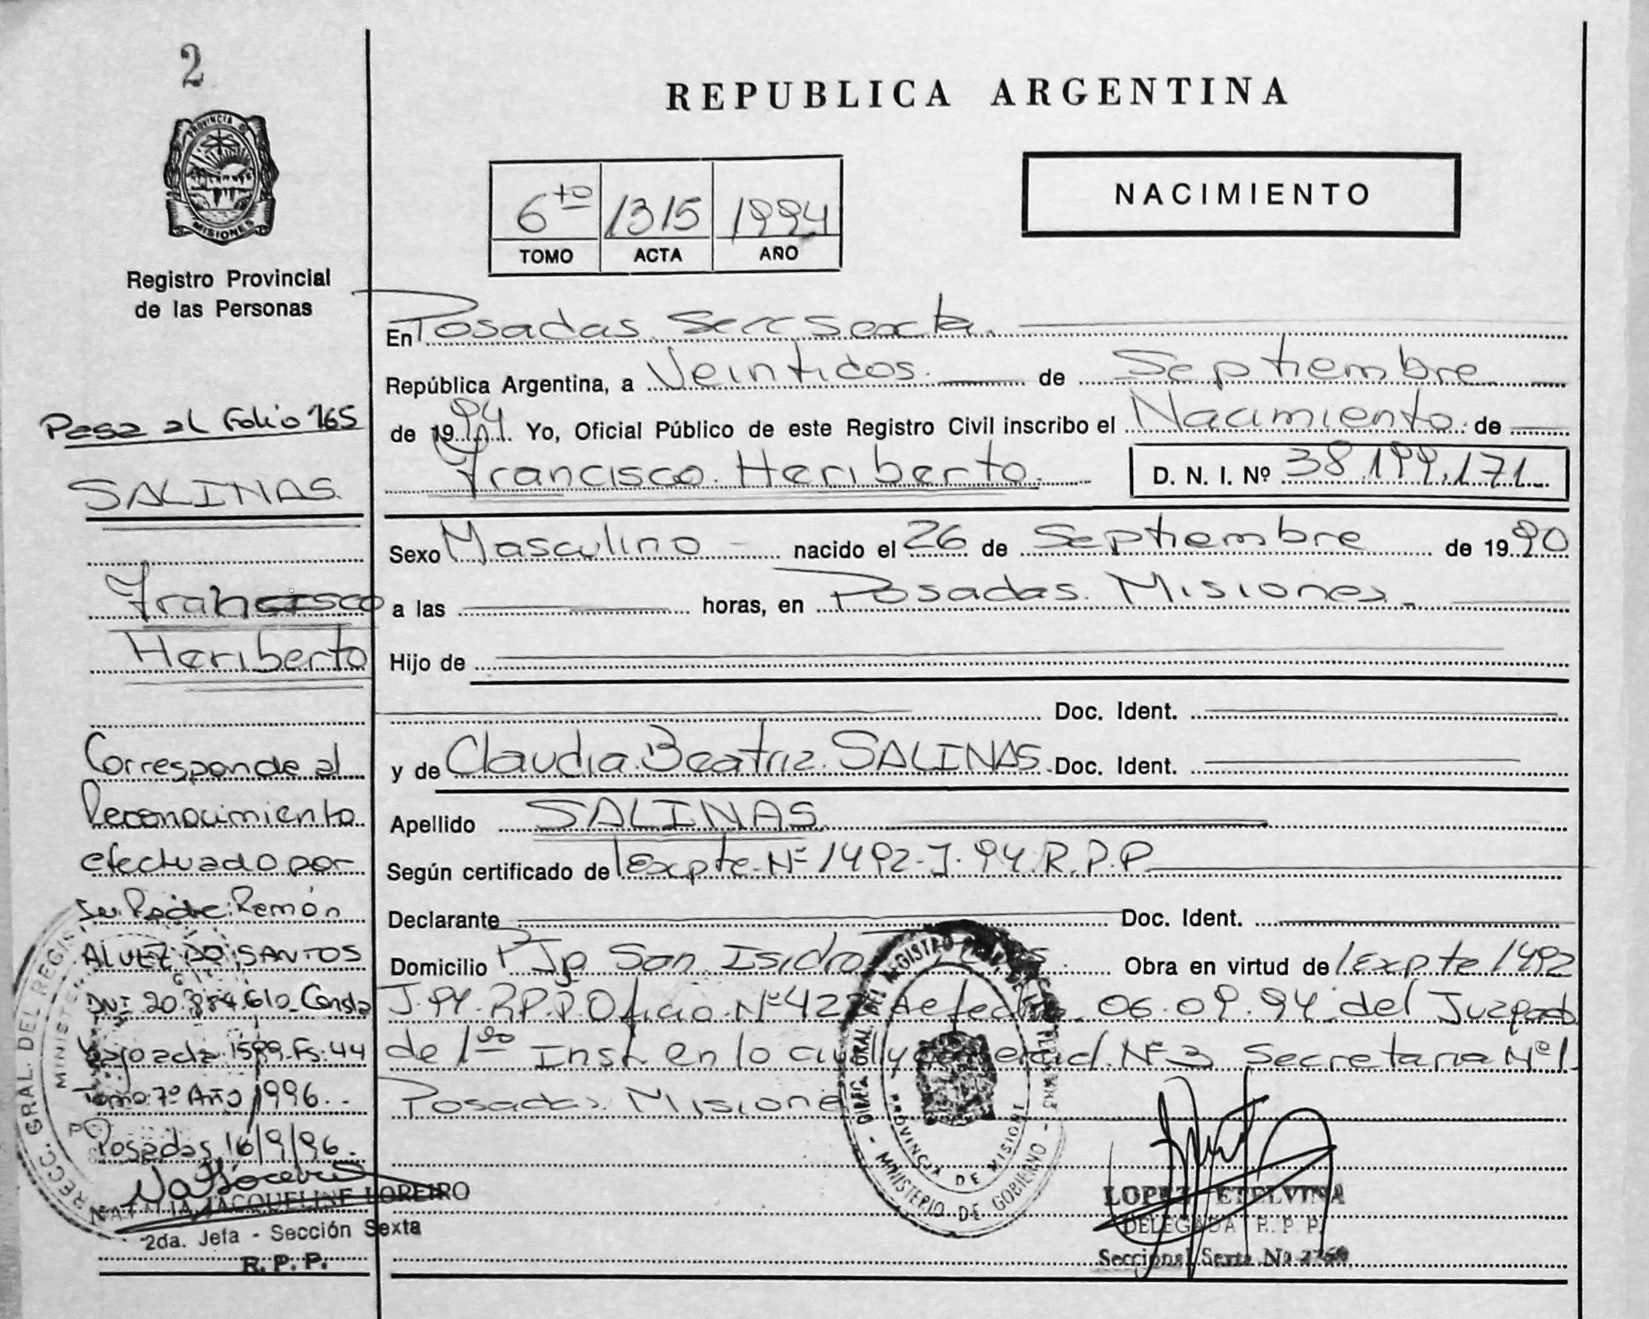 2
PROVINCIA DE
MISIONES
Registro Provincial
de las Personas
Pasa al Folio 165
SALINAS
Francisco
Heriberto
Corresponde al
Reconocimiento
efectuado por
su Padre: Ramón
ALVEZ DO SANTOS
DNI 20.884.610 Consta
bajo acta 1599 Fs. 44
Tomo 7º Año 1996.
Posadas, 16/9/96.
JACQUELINE LOREIRO
2da. Jefa - Sección Sexta
R. P. P.
REPUBLICA ARGENTINA
NACIMIENTO
6to 1315 1994
TOMO ACTA AÑO
En Posadas Secc Sexta
República Argentina, a Veintidos de Septiembre
de 1994. Yo, Oficial Público de este Registro Civil inscribo el Nacimiento de
Francisco Heriberto. D. N. I. Nº 38.199.171
Sexo Masculino nacido el 26 de Septiembre de 1990
a las horas, en Posadas Misiones
Hijo de
Doc. Ident.
y de Claudia Beatriz SALINAS Doc. Ident.
Apellido SALINAS
Según certificado de Expte Nº 1492-J-94 R.P.P
Declarante Doc. Ident.
Domicilio San Isidro Obra en virtud de Expte 1492
J-94-R.P.P Oficio Nº 42 de fecha 06.09.94 del Juzgado
de 1ra Inst. en lo civil y comercial Nº 3 Secretaria Nº 1
Posadas Misiones
DIREC. GRAL. DEL REGISTRO
PROVINCIA DE MISIONES
MINISTERIO DE GOBIERNO
DIRECC. GRAL. DEL REGIS
MINISTE
LOPEZ ETELVINA
DELEGADA R. P. P.
Seccional Sexta No